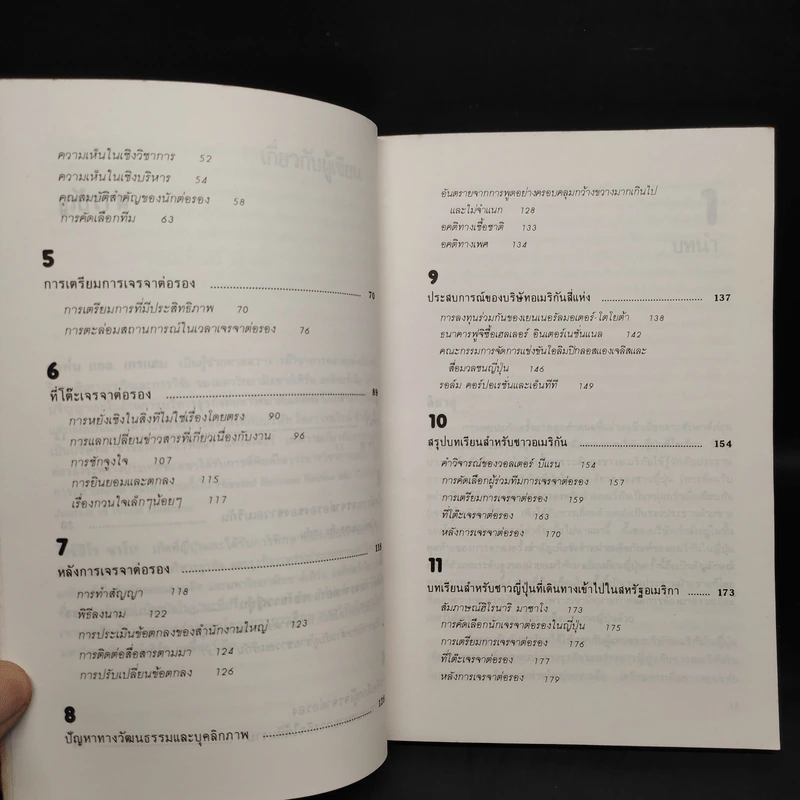 ความเห็นในเชิงวิชาการ 52
ความเห็นในเชิงบริหาร 54
คุณสมบัติสำคัญของนักต่อรอง 58
การคัดเลือกทีม 63
5
การเตรียมการเจรจาต่อรอง 70
การเตรียมการที่มีประสิทธิภาพ 70
การตะล่อมสถานการณ์ในเวลาเจรจาต่อรอง 76
6
ที่โต๊ะเจรจาต่อรอง
การหยั่งเชิงในสิ่งที่ไม่ใช่เรื่องโดยตรง 90
การแลกเปลี่ยนข่าวสารที่เกี่ยวเนื่องกับงาน 96
การชักจูงใจ 107
การยินยอมและตกลง 115
เรื่องกวนใจเล็กๆน้อยๆ 117
7
หลังการเจรจาต่อรอง 118
การทำสัญญา 118
พิธีลงนาม 122
การประเมินข้อตกลงของสำนักงานใหญ่ 123
การติดต่อสื่อสารตามมา 124
การปรับเปลี่ยนข้อตกลง 126
8
ปัญหาทางวัฒนธรรมและบุคลิกภาพ
อันตรายจากการพูดอย่างครอบคลุมกว้างขวางมากเกินไป
และไม่จำแนก 128
อคติทางเชื้อชาติ 133
อคติทางเพศ 134
9
ประสบการณ์ของบริษัทอเมริกันสี่แห่ง 137
การลงทุนร่วมกันของเยนเนอรัลมอเตอร์-โตโยต้า 138
ธนาคารฟูจิซื้อเฮลเลอร์ อินเตอร์เนชั่นแนล 142
คณะกรรมการจัดการแข่งขันโอลิมปิกลอสแองเจลิสและ
สื่อมวลชนญี่ปุ่น 146
รอล์ม คอร์ปอเรชันและเอ็นทีที 149
10
สรุปบทเรียนสำหรับชาวอเมริกัน 154
คำวิจารณ์ของวอลเตอร์ บีแรน 154
การคัดเลือกผู้ร่วมทีมการเจรจาต่อรอง 157
การเตรียมการเจรจาต่อรอง 159
ที่โต๊ะเจรจาต่อรอง 163
หลังการเจรจาต่อรอง 170
11
บทเรียนสำหรับชาวญี่ปุ่นที่เดินทางเข้าไปในสหรัฐอเมริกา 173
สัมภาษณ์ฮิโรนาริ มาซาโง 173
การคัดเลือกนักเจรจาต่อรองในญี่ปุ่น 175
การเตรียมการเจรจาต่อรอง 176
ที่โต๊ะเจรจาต่อรอง 177
หลังการเจรจาต่อรอง 179